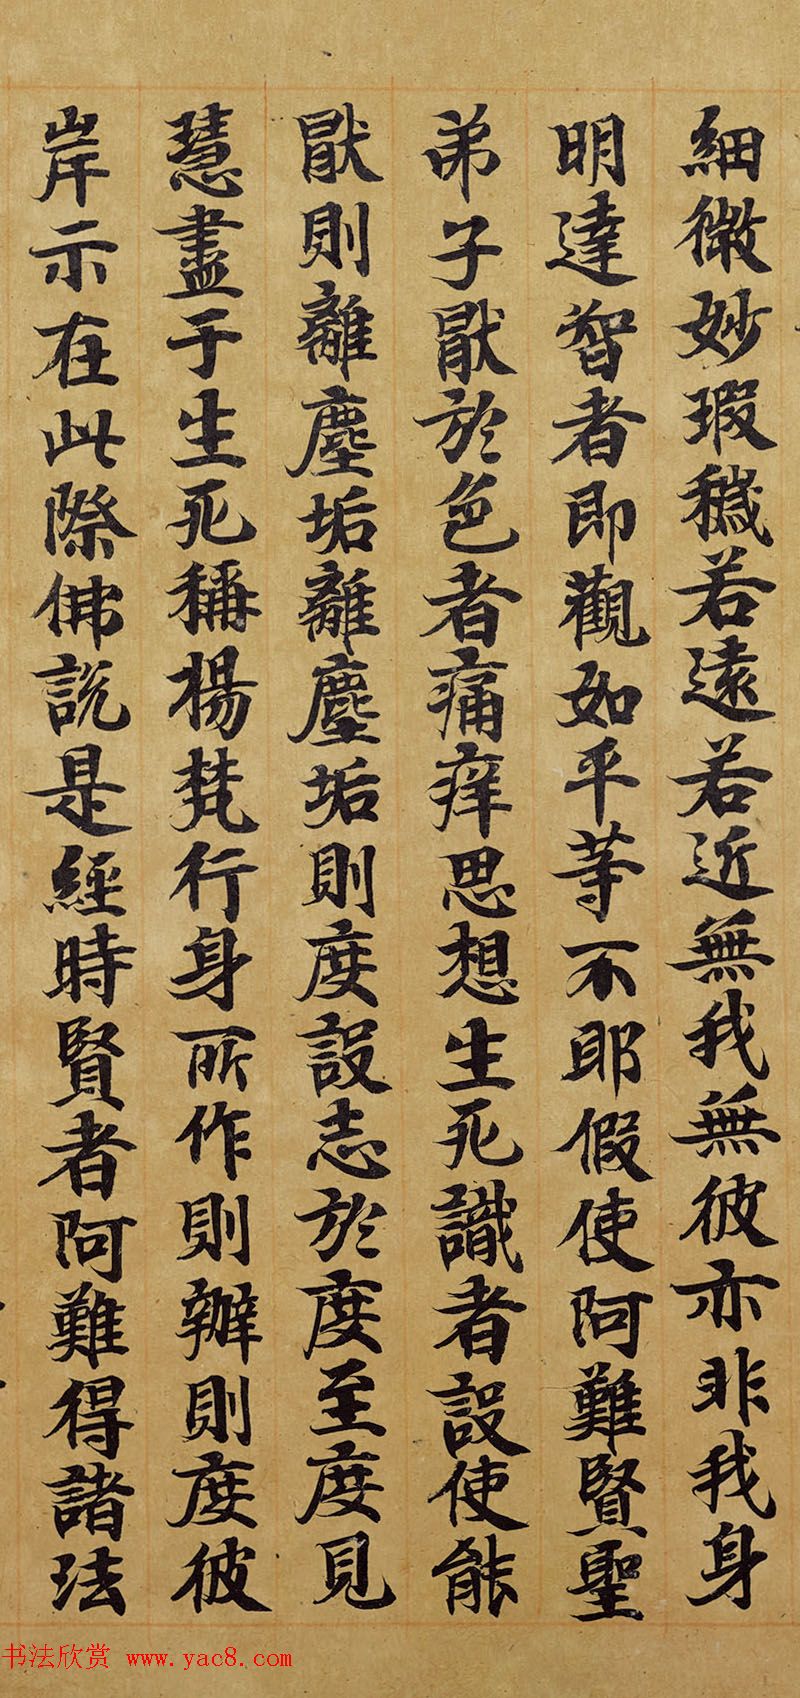 細微妙瑕穢若遠若近無我無彼亦非我身
明達智者即觀如平等不耶假使阿難賢聖
弟子猒於色者痛痒思想生死識者設使能
猒則離塵垢離塵垢則度設志於度至度見
慧盡于生死稱揚梵行身所作則辦則度彼
岸示在此際佛說是經時賢者阿難得諸法
书法欣赏 www.yac8.com